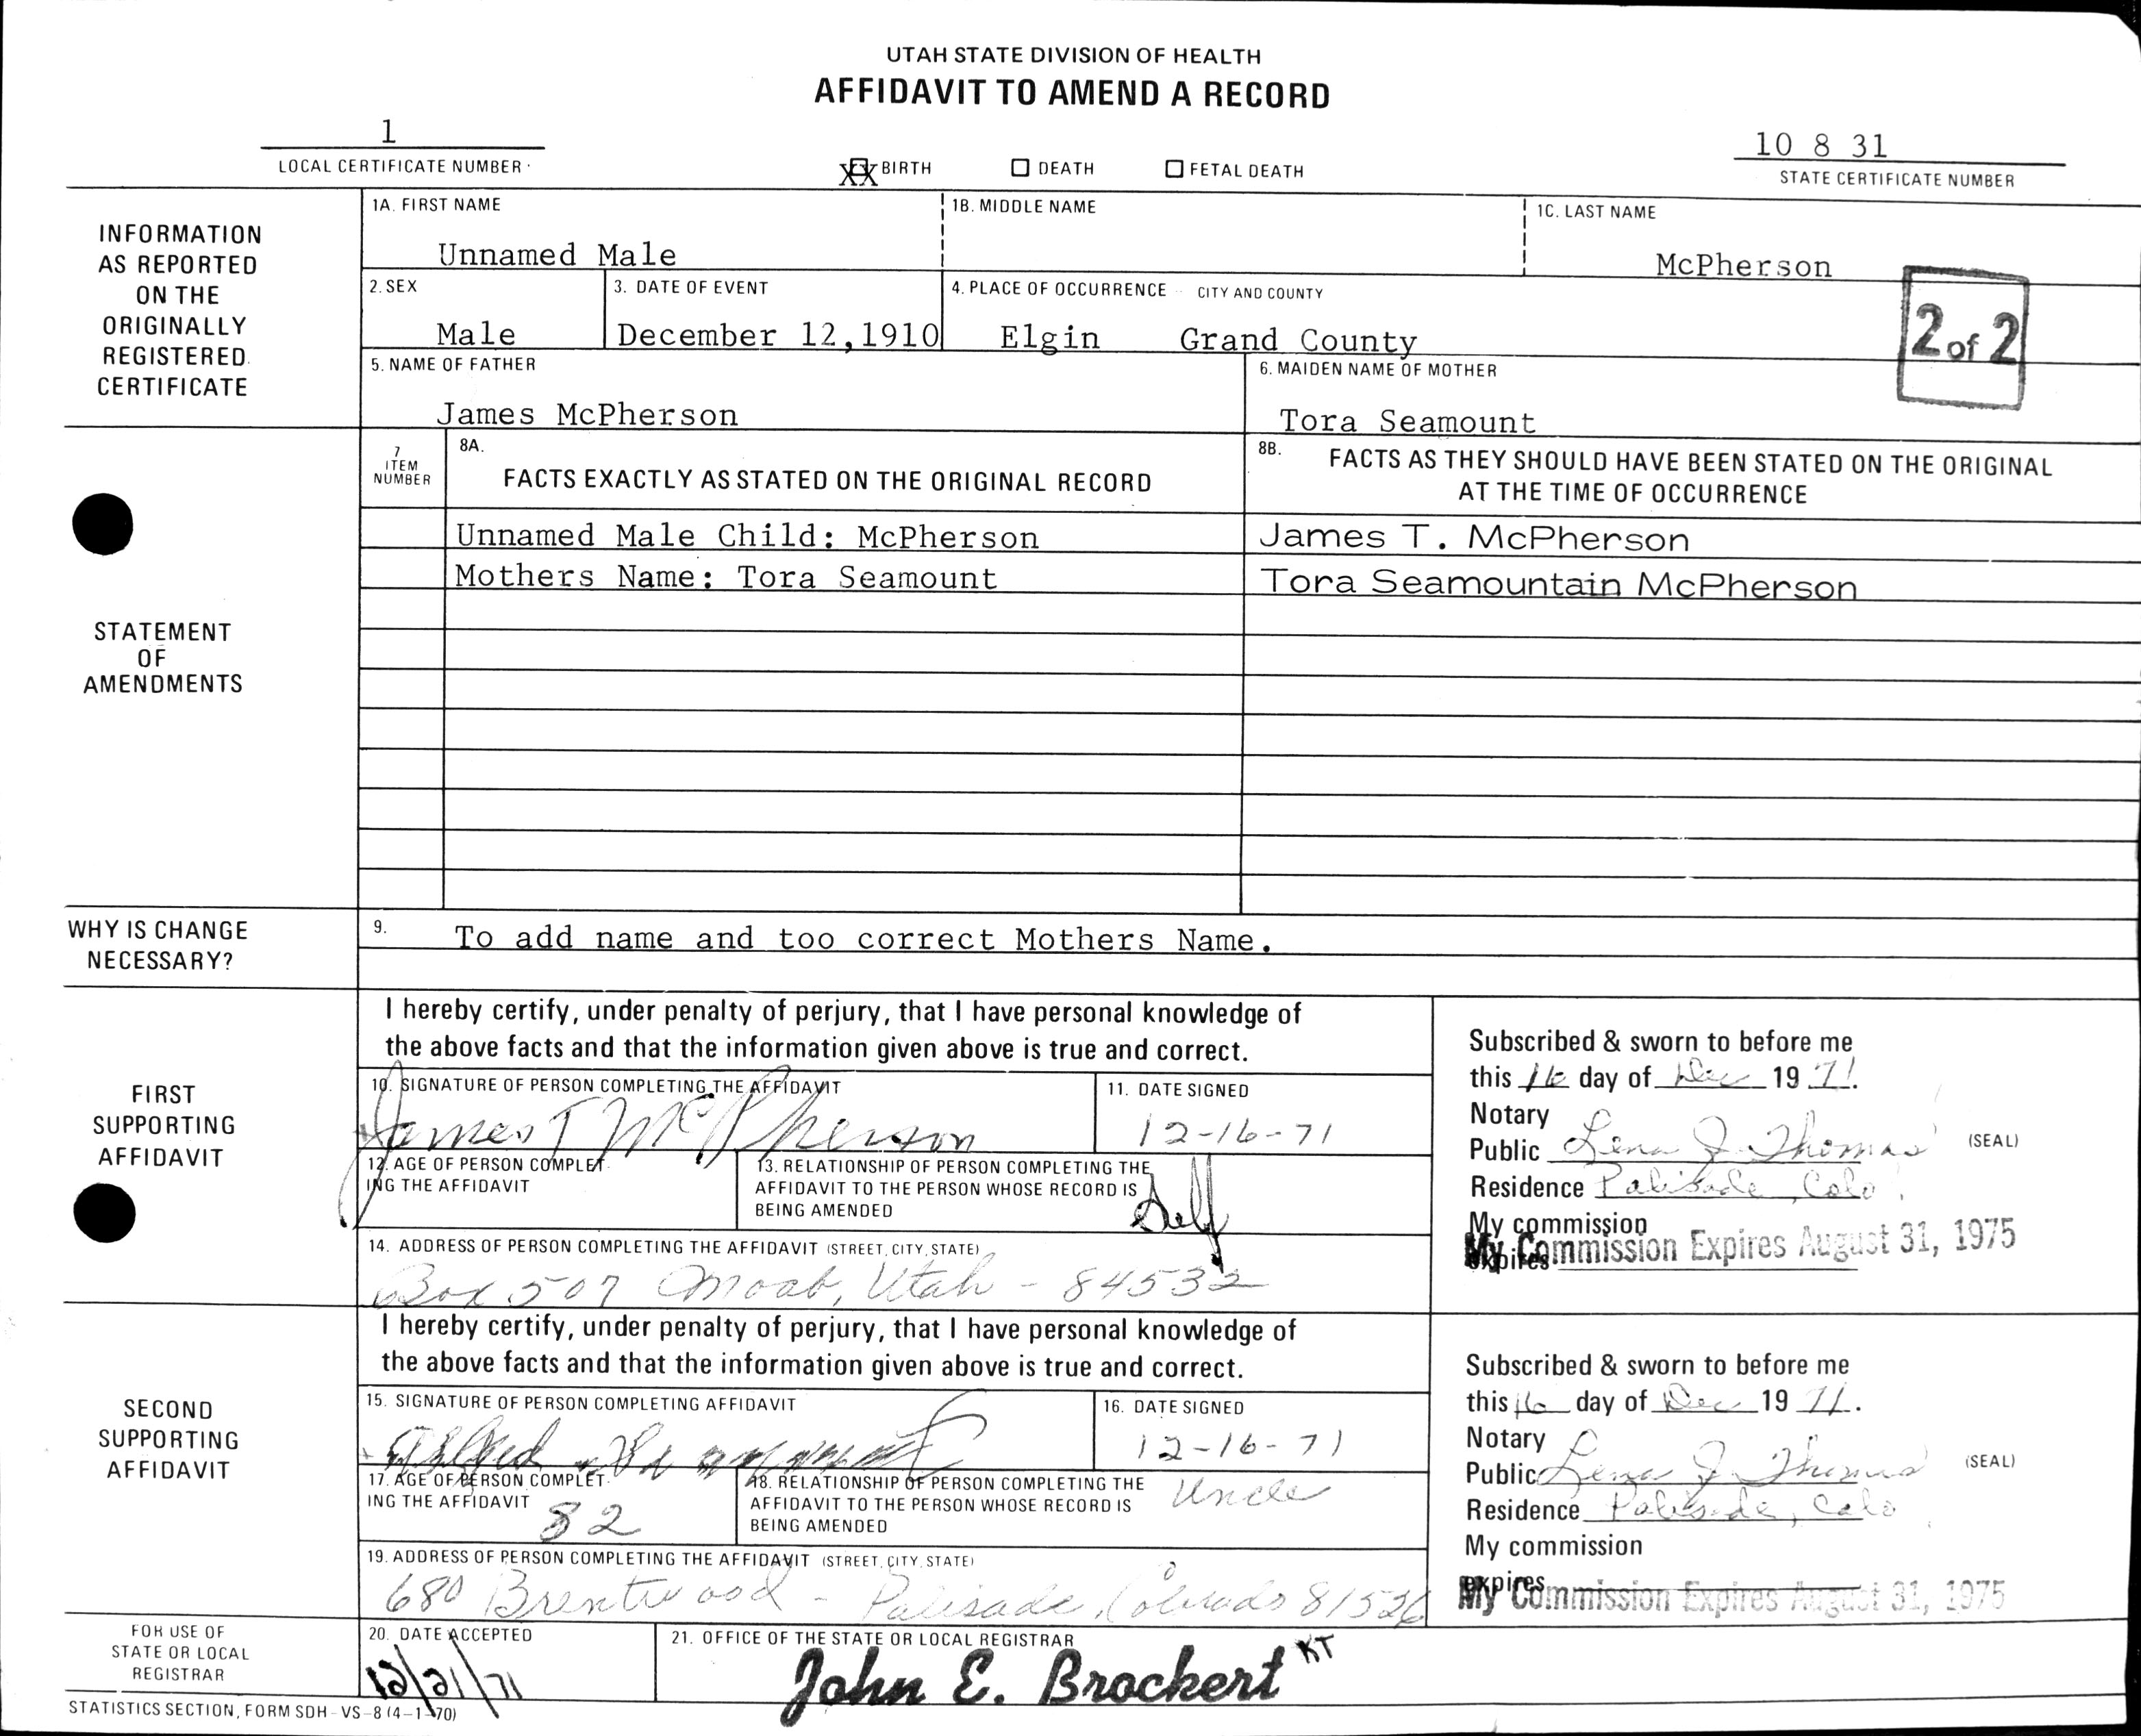 UTAH STATE DIVISION OF HEALTH
AFFIDAVIT TO AMEND A RECORD
1
LOCAL CERTIFICATE NUMBER
XX BIRTH
DEATH
FETAL DEATH
10 8 31
STATE CERTIFICATE NUMBER
INFORMATION
AS REPORTED
ON THE
ORIGINALLY
REGISTERED
CERTIFICATE
1A. FIRST NAME
Unnamed Male
1B. MIDDLE NAME
1C. LAST NAME
McPherson
2. SEX
Male
3. DATE OF EVENT
December 12,1910
4. PLACE OF OCCURRENCE CITY AND COUNTY
Elgin Grand County
2 of 2
5. NAME OF FATHER
James McPherson
6. MAIDEN NAME OF MOTHER
Tora Seamount
STATEMENT
OF
AMENDMENTS
7
ITEM
NUMBER
8A.
FACTS EXACTLY AS STATED ON THE ORIGINAL RECORD
8B. FACTS AS THEY SHOULD HAVE BEEN STATED ON THE ORIGINAL
AT THE TIME OF OCCURRENCE
Unnamed Male Child: McPherson
James T. McPherson
Mothers Name: Tora Seamount
Tora Seamountain McPherson
WHY IS CHANGE
NECESSARY?
9. To add name and too correct Mothers Name.
FIRST
SUPPORTING
AFFIDAVIT
I hereby certify, under penalty of perjury, that I have personal knowledge of
the above facts and that the information given above is true and correct.
10. SIGNATURE OF PERSON COMPLETING THE AFFIDAVIT
James T McPherson
11. DATE SIGNED
12-16-71
12. AGE OF PERSON COMPLET-
ING THE AFFIDAVIT
13. RELATIONSHIP OF PERSON COMPLETING THE
AFFIDAVIT TO THE PERSON WHOSE RECORD IS
BEING AMENDED
Self
14. ADDRESS OF PERSON COMPLETING THE AFFIDAVIT (STREET, CITY, STATE)
Box 507 Moab, Utah - 84532
Subscribed & sworn to before me
this 16 day of Dec 19 71.
Notary
Public Lena J. Thomas (SEAL)
Residence Palisade, Colo.
My commission
expires
My Commission Expires August 31, 1975
SECOND
SUPPORTING
AFFIDAVIT
I hereby certify, under penalty of perjury, that I have personal knowledge of
the above facts and that the information given above is true and correct.
15. SIGNATURE OF PERSON COMPLETING AFFIDAVIT
16. DATE SIGNED
12-16-71
17. AGE OF PERSON COMPLET-
ING THE AFFIDAVIT
82
18. RELATIONSHIP OF PERSON COMPLETING THE
AFFIDAVIT TO THE PERSON WHOSE RECORD IS
BEING AMENDED
Uncle
19. ADDRESS OF PERSON COMPLETING THE AFFIDAVIT (STREET, CITY, STATE)
680 Brentwood - Palisade, Colorado 81526
Subscribed & sworn to before me
this 16 day of Dec 19 71.
Notary
Public Lena J. Thomas (SEAL)
Residence Palisade, Colo
My commission
expires
My Commission Expires August 31, 1975
FOR USE OF
STATE OR LOCAL
REGISTRAR
20. DATE ACCEPTED
12/21/71
21. OFFICE OF THE STATE OR LOCAL REGISTRAR
John E. Brockert KT
STATISTICS SECTION, FORM SDH-VS-8 (4-1-70)